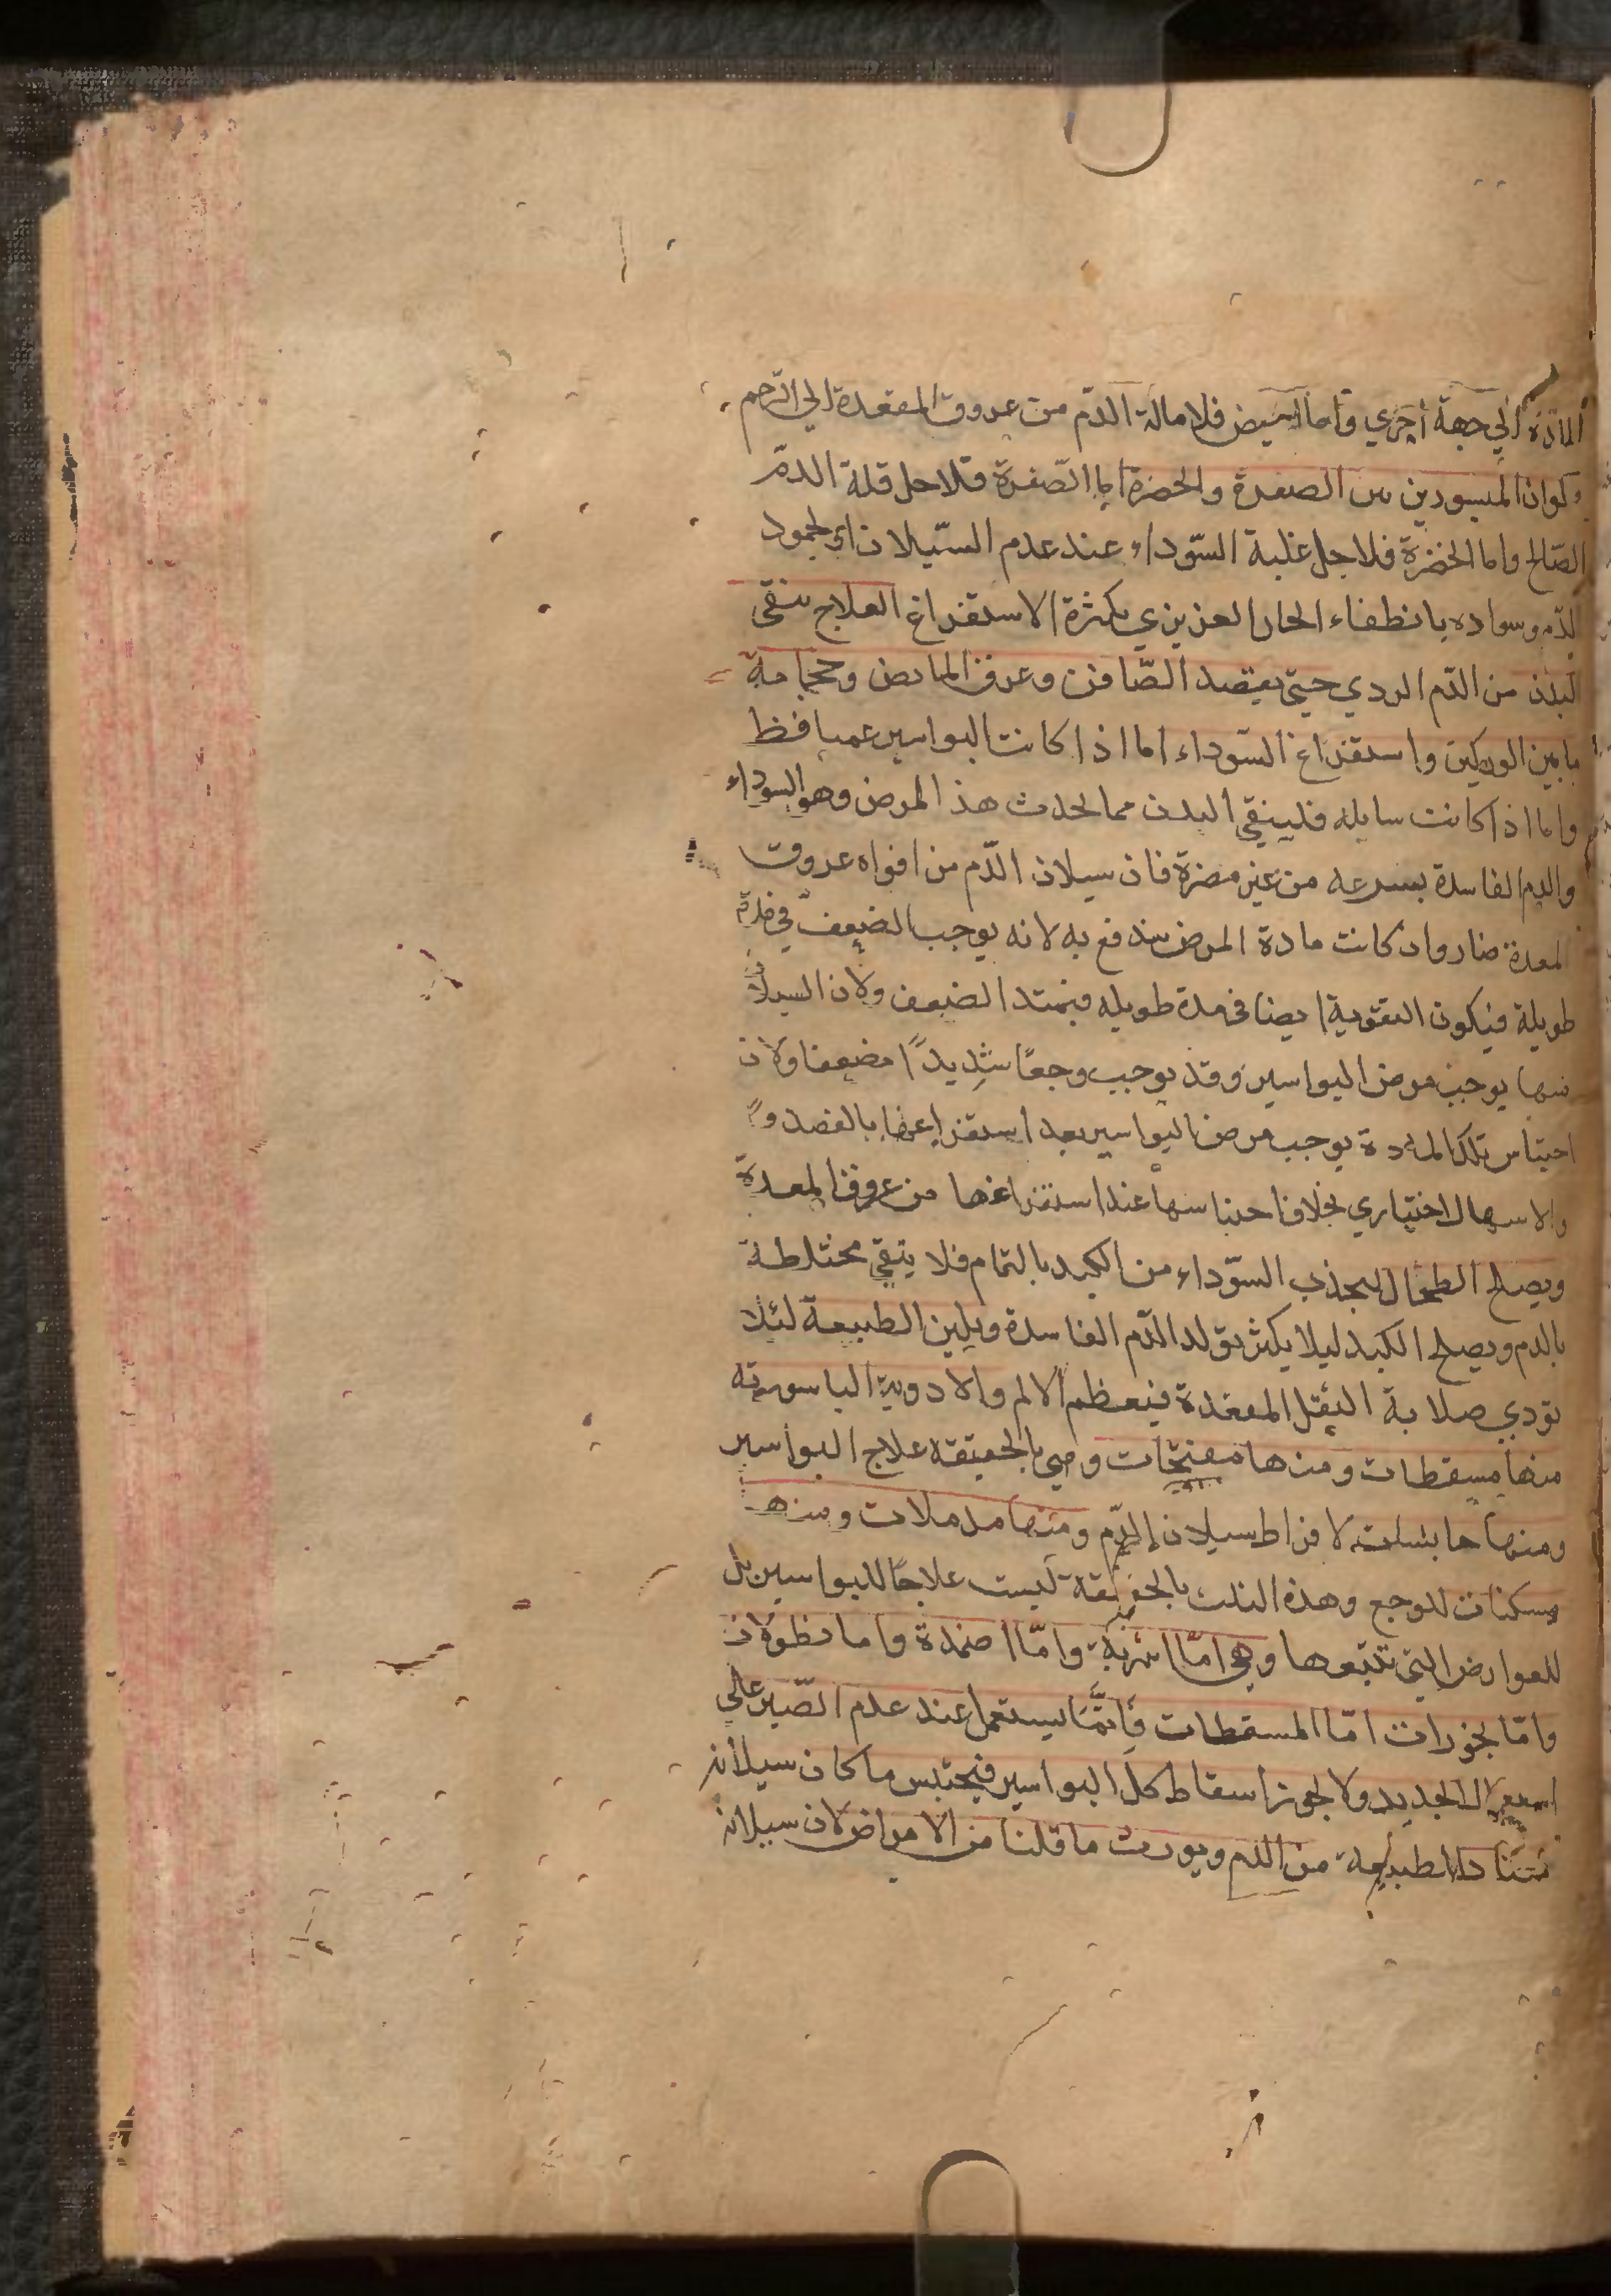 المادة الي جهة اخري واما الحيض فلامالة الدّم من عروق المقعدة الي الرّحم
وكوان المبسورين بين الصفرة والخضرة اما الصّفرة فلاجل قلة الدمّ
الصّالح واما الخضرة فلاجل غلبة السّوداء عند عدم السّيلان اي لجمود
الدّم وسواده بانطفاء الحار الغريزي بكثرة الاستفراغ العلاج ينقي
البدن من الدّم الردي حتي بفصد الصّافن وعرق المابض وحجامة
ما بين الوركين واستفراغ السّوداء اما اذا كانت البواسير عميا فظ
واما اذا كانت سايله فلينقي البدن مما يحدث هذ المرض وهو السوداء
والدم الفاسدة بسرعه من غير مضرة فان سيلان الدّم من افواه عروق
المعدة ضار وان كانت مادة المرض تندفع به لانه يوجب الضعف في مدة
طويلة فيكون التقوية ايضا في مدة طويله فيمتد الضعف ولان السيلان
منها يوجب مرض البواسير وقد يوجب وجعًا شديدًا مضعفا ولان
احتباس تلك المادة يوجب مرض البواسير بعد استفراغها بالفصد و
والاسهال اختياري بخلاف احتباسها عند استفراغها من عروق المعدة
ويصلح الطحال ليجذب السوّداء من الكبد بالتمام فلا يبقي مختلطة
بالدم ويصلح الكبد ليلا يكثر تولد الدّم الفاسدة ويلين الطبيعة لئلا
تودي صلابة الثفل المقعدة فيعظم الالم والادوية الباسورية
منها مسقطات ومنها مفتحات وهي بالحقيقة علاج البواسير
ومنها حابسات لافراط سيلان الدّم ومنها مدملات ومنها
مسكنات للوجع وهذه الثلث بالحقيقة ليست علاجًا للبواسير بل
للعوارض التي تتبعها وهي امّا اشربة وامّا اضمدة واما نطولات
وامّا بخورات امّا المسقطات فَاِنَّمَا يستعمل عند عدم الصّبر علي
استعمال الحديد ولا يجوز اسقاط كل البواسير فيحتبس ما كان سيلانه
معتاد الطبيعة من الدم ويورث ما قلنا من الامراض لان سيلانه